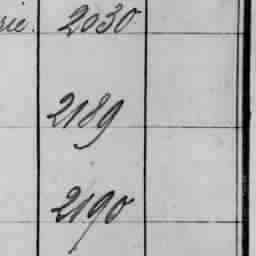 rie. 2030
2189
2190